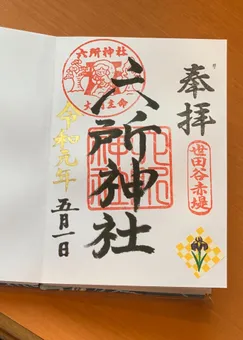 奉拝
世田谷赤堤
六所神社
六所神社
大國主命
六所神社
令和元年
五月一日